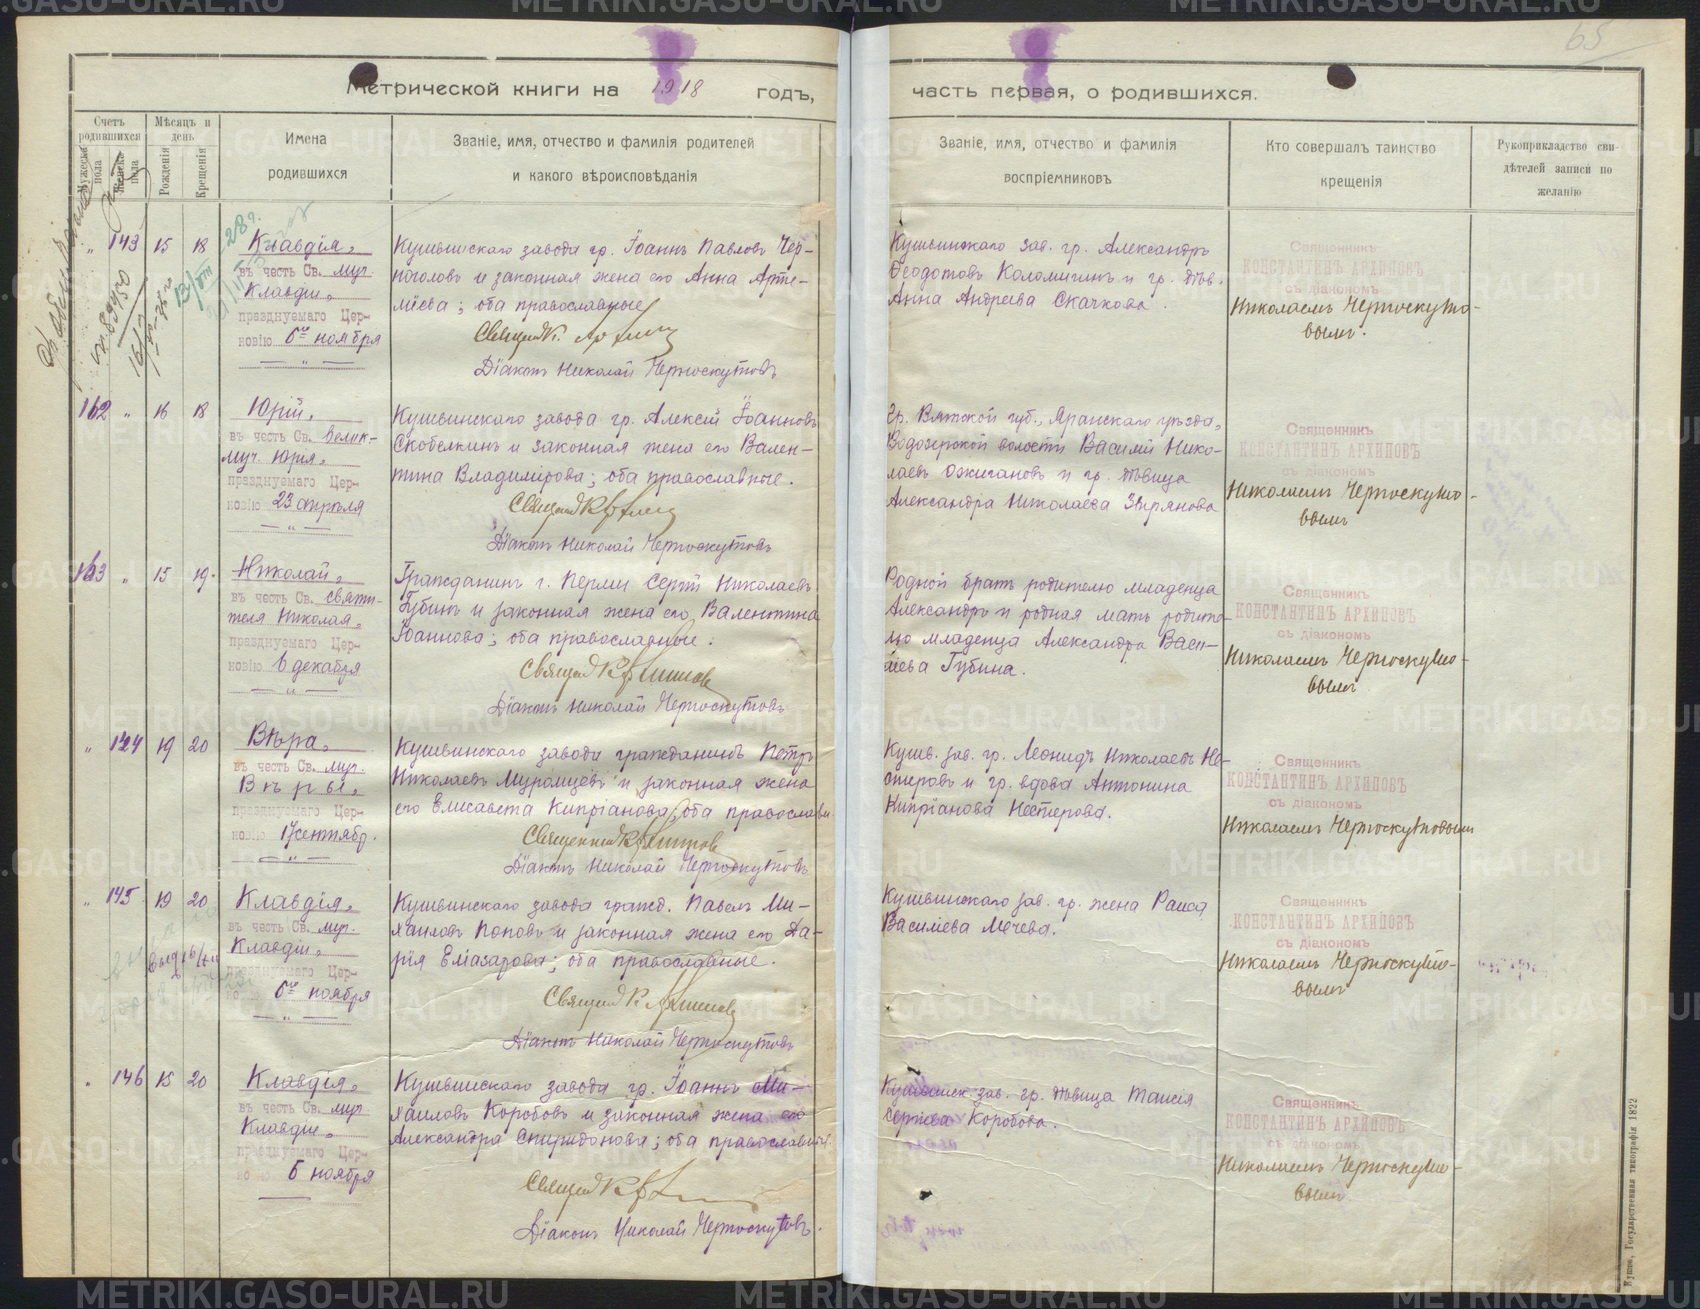 Метрической книги на 1918 годъ,
часть первая, о родившихся.
65
Счетъ родившихся
Мужеска пола
Женска пола
Мѣсяцъ и день
Рожденія
Крещенія
Имена
родившихся
Званіе, имя, отчество и фамилія родителей
и какого вѣроисповѣданія
Званіе, имя, отчество и фамилія
воспріемниковъ
Кто совершалъ таинство
крещенія
Рукоприкладство сви-
дѣтелей записи по
желанію
„ 143 15 18
Клавдія,
въ честь Св. муч.
Клавдіи,
празднуемаго Цер-
ковію 6го ноября
Кушвинскаго завода гр. Іоаннъ Павловъ Чер-
ноголовъ и законная жена его Анна Арте-
міева; оба православные
Діаконъ Николай Черноскутовъ
Кушвинскаго зав. гр. Александръ
Ѳеодотовъ Коломигинъ и гр. дѣв.
Анна Андреева Скачкова.
Священникъ
КОНСТАНТИНЪ АРХИПОВЪ
съ діакономъ
Николаемъ Черноскуто-
вымъ.
162 „ 16 18
Юрій,
въ честь Св. велик-
муч. Юрія,
празднуемаго Цер-
ковію 23 апрѣля
Кушвинскаго завода гр. Алексій Іоанновъ
Скобелкинъ и законная жена его Вален-
тина Владимірова; оба православные.
Діаконъ Николай Черноскутовъ
гр. Вятской губ., Яранскаго уѣзда,
Водозерской волости Василій Нико-
лаевъ Ожигановъ и гр. дѣвица
Александра Николаева Зырянова
Священникъ
КОНСТАНТИНЪ АРХИПОВЪ
съ діакономъ
Николаемъ Черноскуто-
вымъ
163 „ 15 19
Николай,
въ честь Св. святи-
теля Николая,
празднуемаго Цер-
ковію 6 декабря
Гражданинъ г. Перми Сергій Николаевъ
Губинъ и законная жена его Валентина
Іоаннова; оба православные.
Діаконъ Николай Черноскутовъ
Родной братъ родителю младенца
Александръ и родная мать родите-
лю младенца Александра Васи-
ліева Губина.
Священникъ
КОНСТАНТИНЪ АРХИПОВЪ
съ діакономъ
Николаемъ Черноскуто-
вымъ
„ 144 19 20
Вѣра,
въ честь Св. муч.
Вѣры,
празднуемаго Цер-
ковію 17 сентябр.
Кушвинскаго завода гражданинъ Петръ
Николаевъ Муромцевъ и законная жена
его Елисавета Кипріанова, оба православн
Діаконъ Николай Черноскутовъ
Кушв. зав. гр. Леонидъ Николаевъ Не-
стеровъ и гр. вдова Антонина
Кипріанова Нестерова.
Священникъ
КОНСТАНТИНЪ АРХИПОВЪ
съ діакономъ
Николаемъ Черноскутовымъ
„ 145 19 20
Клавдія,
въ честь Св. муч.
Клавдіи,
празднуемаго Цер-
ковію 6го ноября
Кушвинскаго завода гражд. Павелъ Ми-
хаиловъ Поповъ и законная жена его Да-
рія Еліазарова; оба православные.
Діаконъ Николай Черноскутовъ
Кушвинскаго зав. гр. жена Раиса
Василіева Мечева.
Священникъ
КОНСТАНТИНЪ АРХИПОВЪ
съ діакономъ
Николаемъ Черноскуто-
вымъ
„ 146 15 20
Клавдія,
въ честь Св. муч
Клавдіи,
празднуемаго Цер-
ковію 6 ноября
Кушвинскаго завода гр. Іоаннъ Ми-
хаиловъ Коробовъ и законная жена его
Александра Спиридонова; оба православные.
Діаконъ Николай Черноскутовъ.
Кушвинск. зав. гр. дѣвица Таисія
Сергіева Коробова.
Священникъ
КОНСТАНТИНЪ АРХИПОВЪ
съ діакономъ
Николаемъ Черноскуто-
вымъ
Кушва, Государственная типографія 1822
METRIKI.GASO-URAL.RU